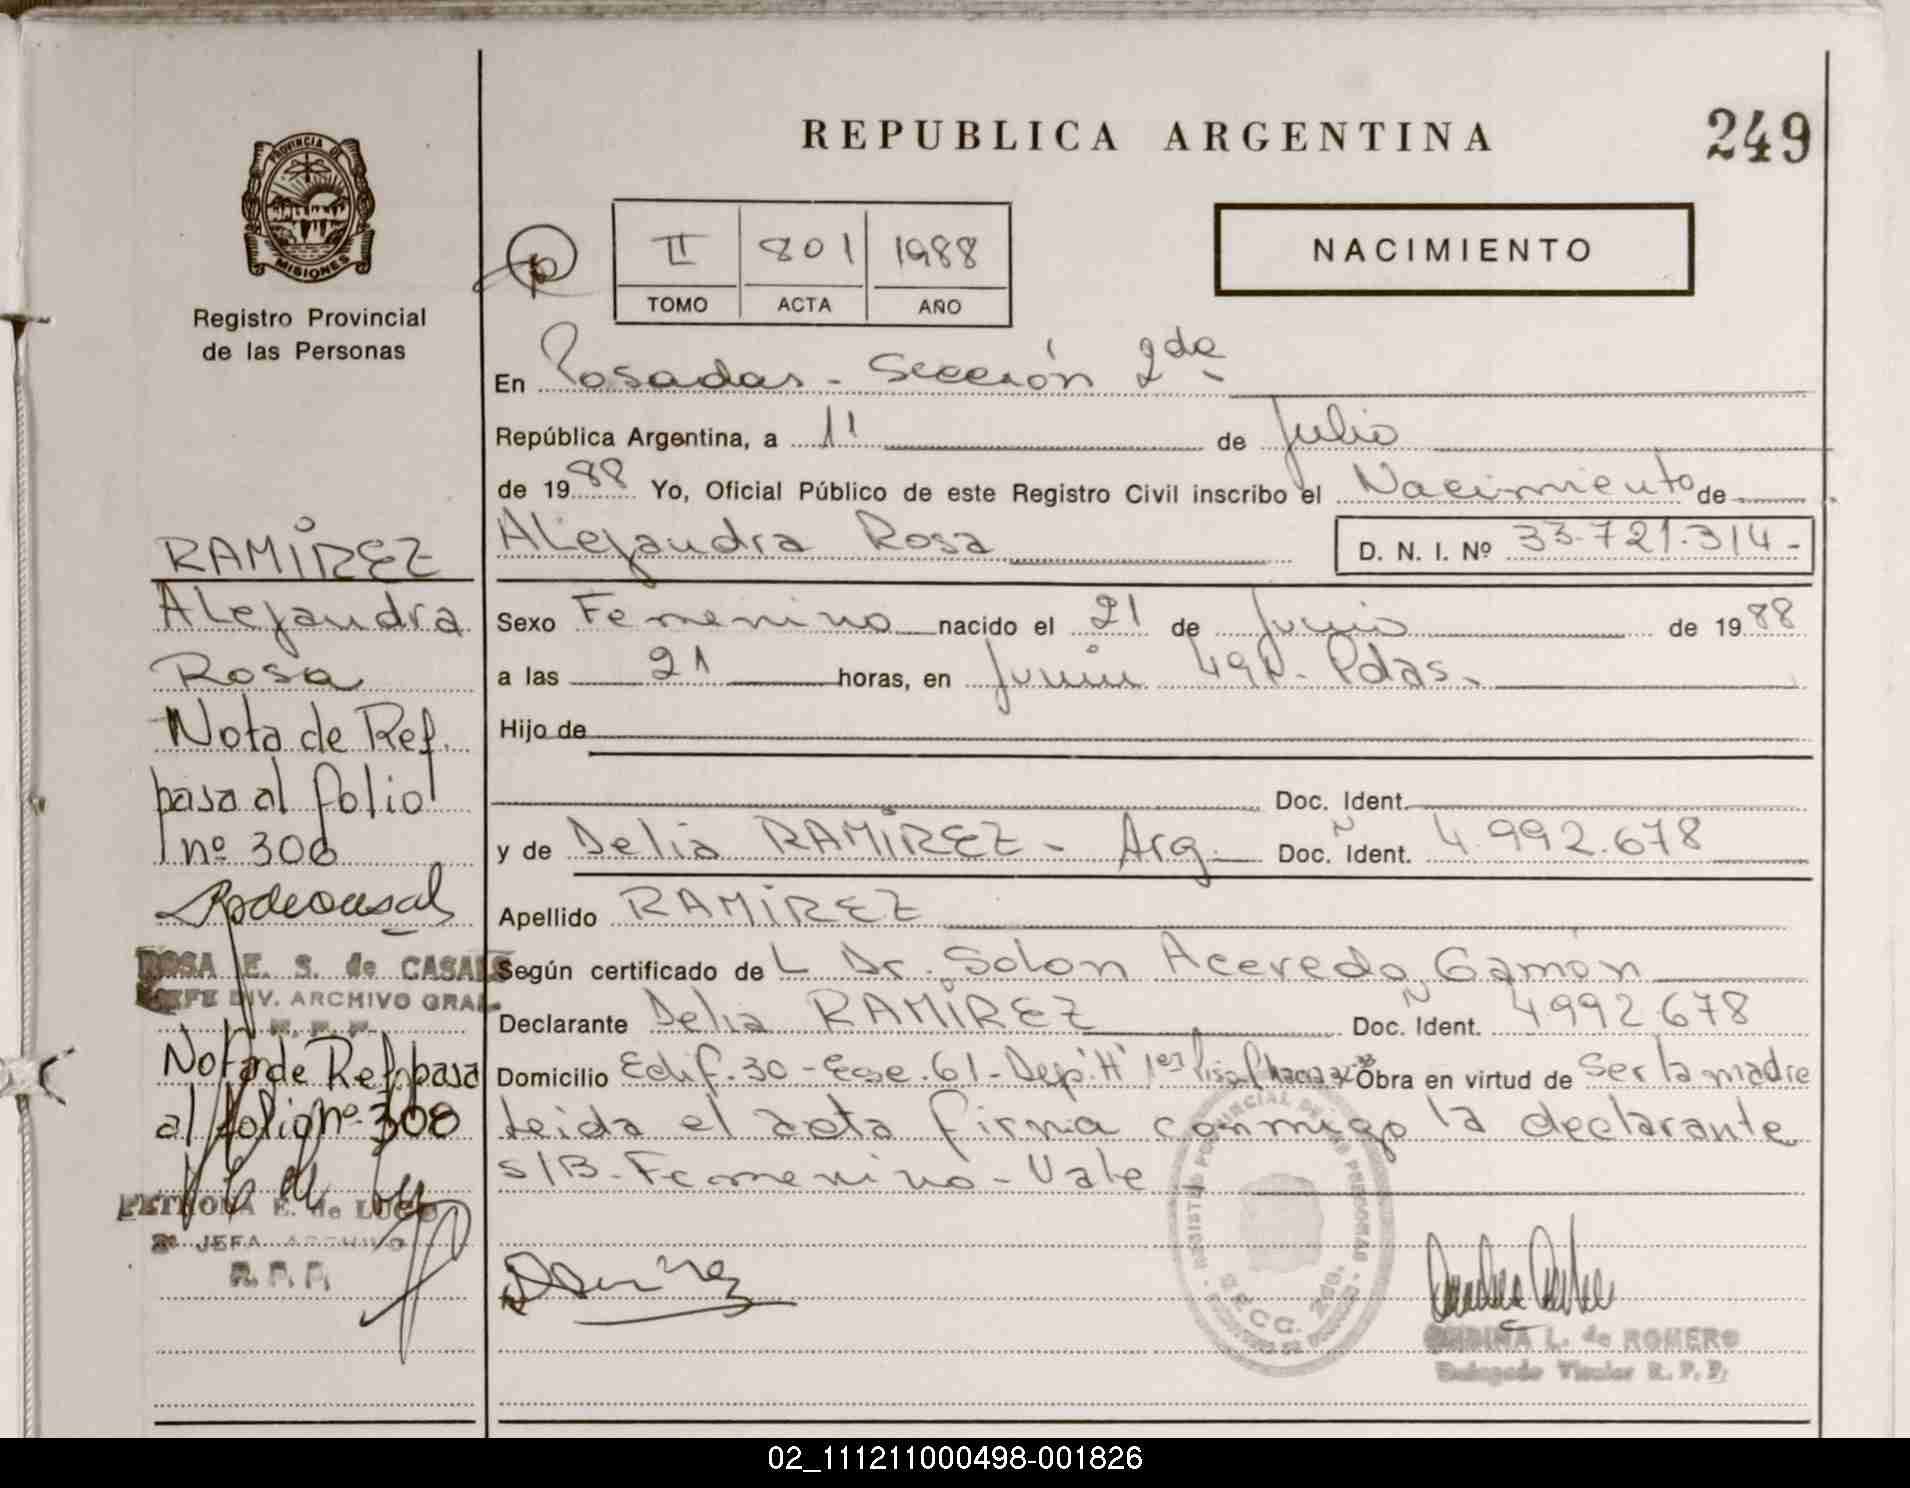 REPUBLICA ARGENTINA
249
PROVINCIA DE
MISIONES
Registro Provincial
de las Personas
II 801 1988
TOMO ACTA AÑO
NACIMIENTO
En Posadas - Sección 2da
República Argentina, a 11 de Julio
de 1988 Yo, Oficial Público de este Registro Civil inscribo el Nacimiento de
Alejandra Rosa D. N. I. Nº 33.721.314-
Sexo Femenino nacido el 21 de Junio de 1988
a las 21 horas, en Junin Pdas.
Hijo de
Doc. Ident.
y de Delia RAMÍREZ - Arg. Doc. Ident. Ñ 4.992.678
Apellido RAMÍREZ
Según certificado de L Dr. Solon Acevedo Gamón
Declarante Delia RAMÍREZ Doc. Ident. Ñ 4992.678
Domicilio Edif. 30 - Esc. 61 - Dep. "H" 1er Piso Chacra 32-33 Obra en virtud de Ser la madre
Leida el acta firma conmigo la declarante
S/B - Femenino - Vale
RAMÍREZ
Alejandra
Rosa
Nota de Ref.
pasa al folio
nº 306
ROSA E. S. de CASALS
JEFE DIV. ARCHIVO GRAL.
R. P. P.
Nota de Ref. pasa
al folio nº 308
PETRONA E. de LUGO
2ª JEFA ARCHIVO
R. P. P.
REGISTRO PROVINCIAL DE LAS PERSONAS
SECC. 2da.
L. de ROMERO
Titular R. P. P.
02_111211000498-001826